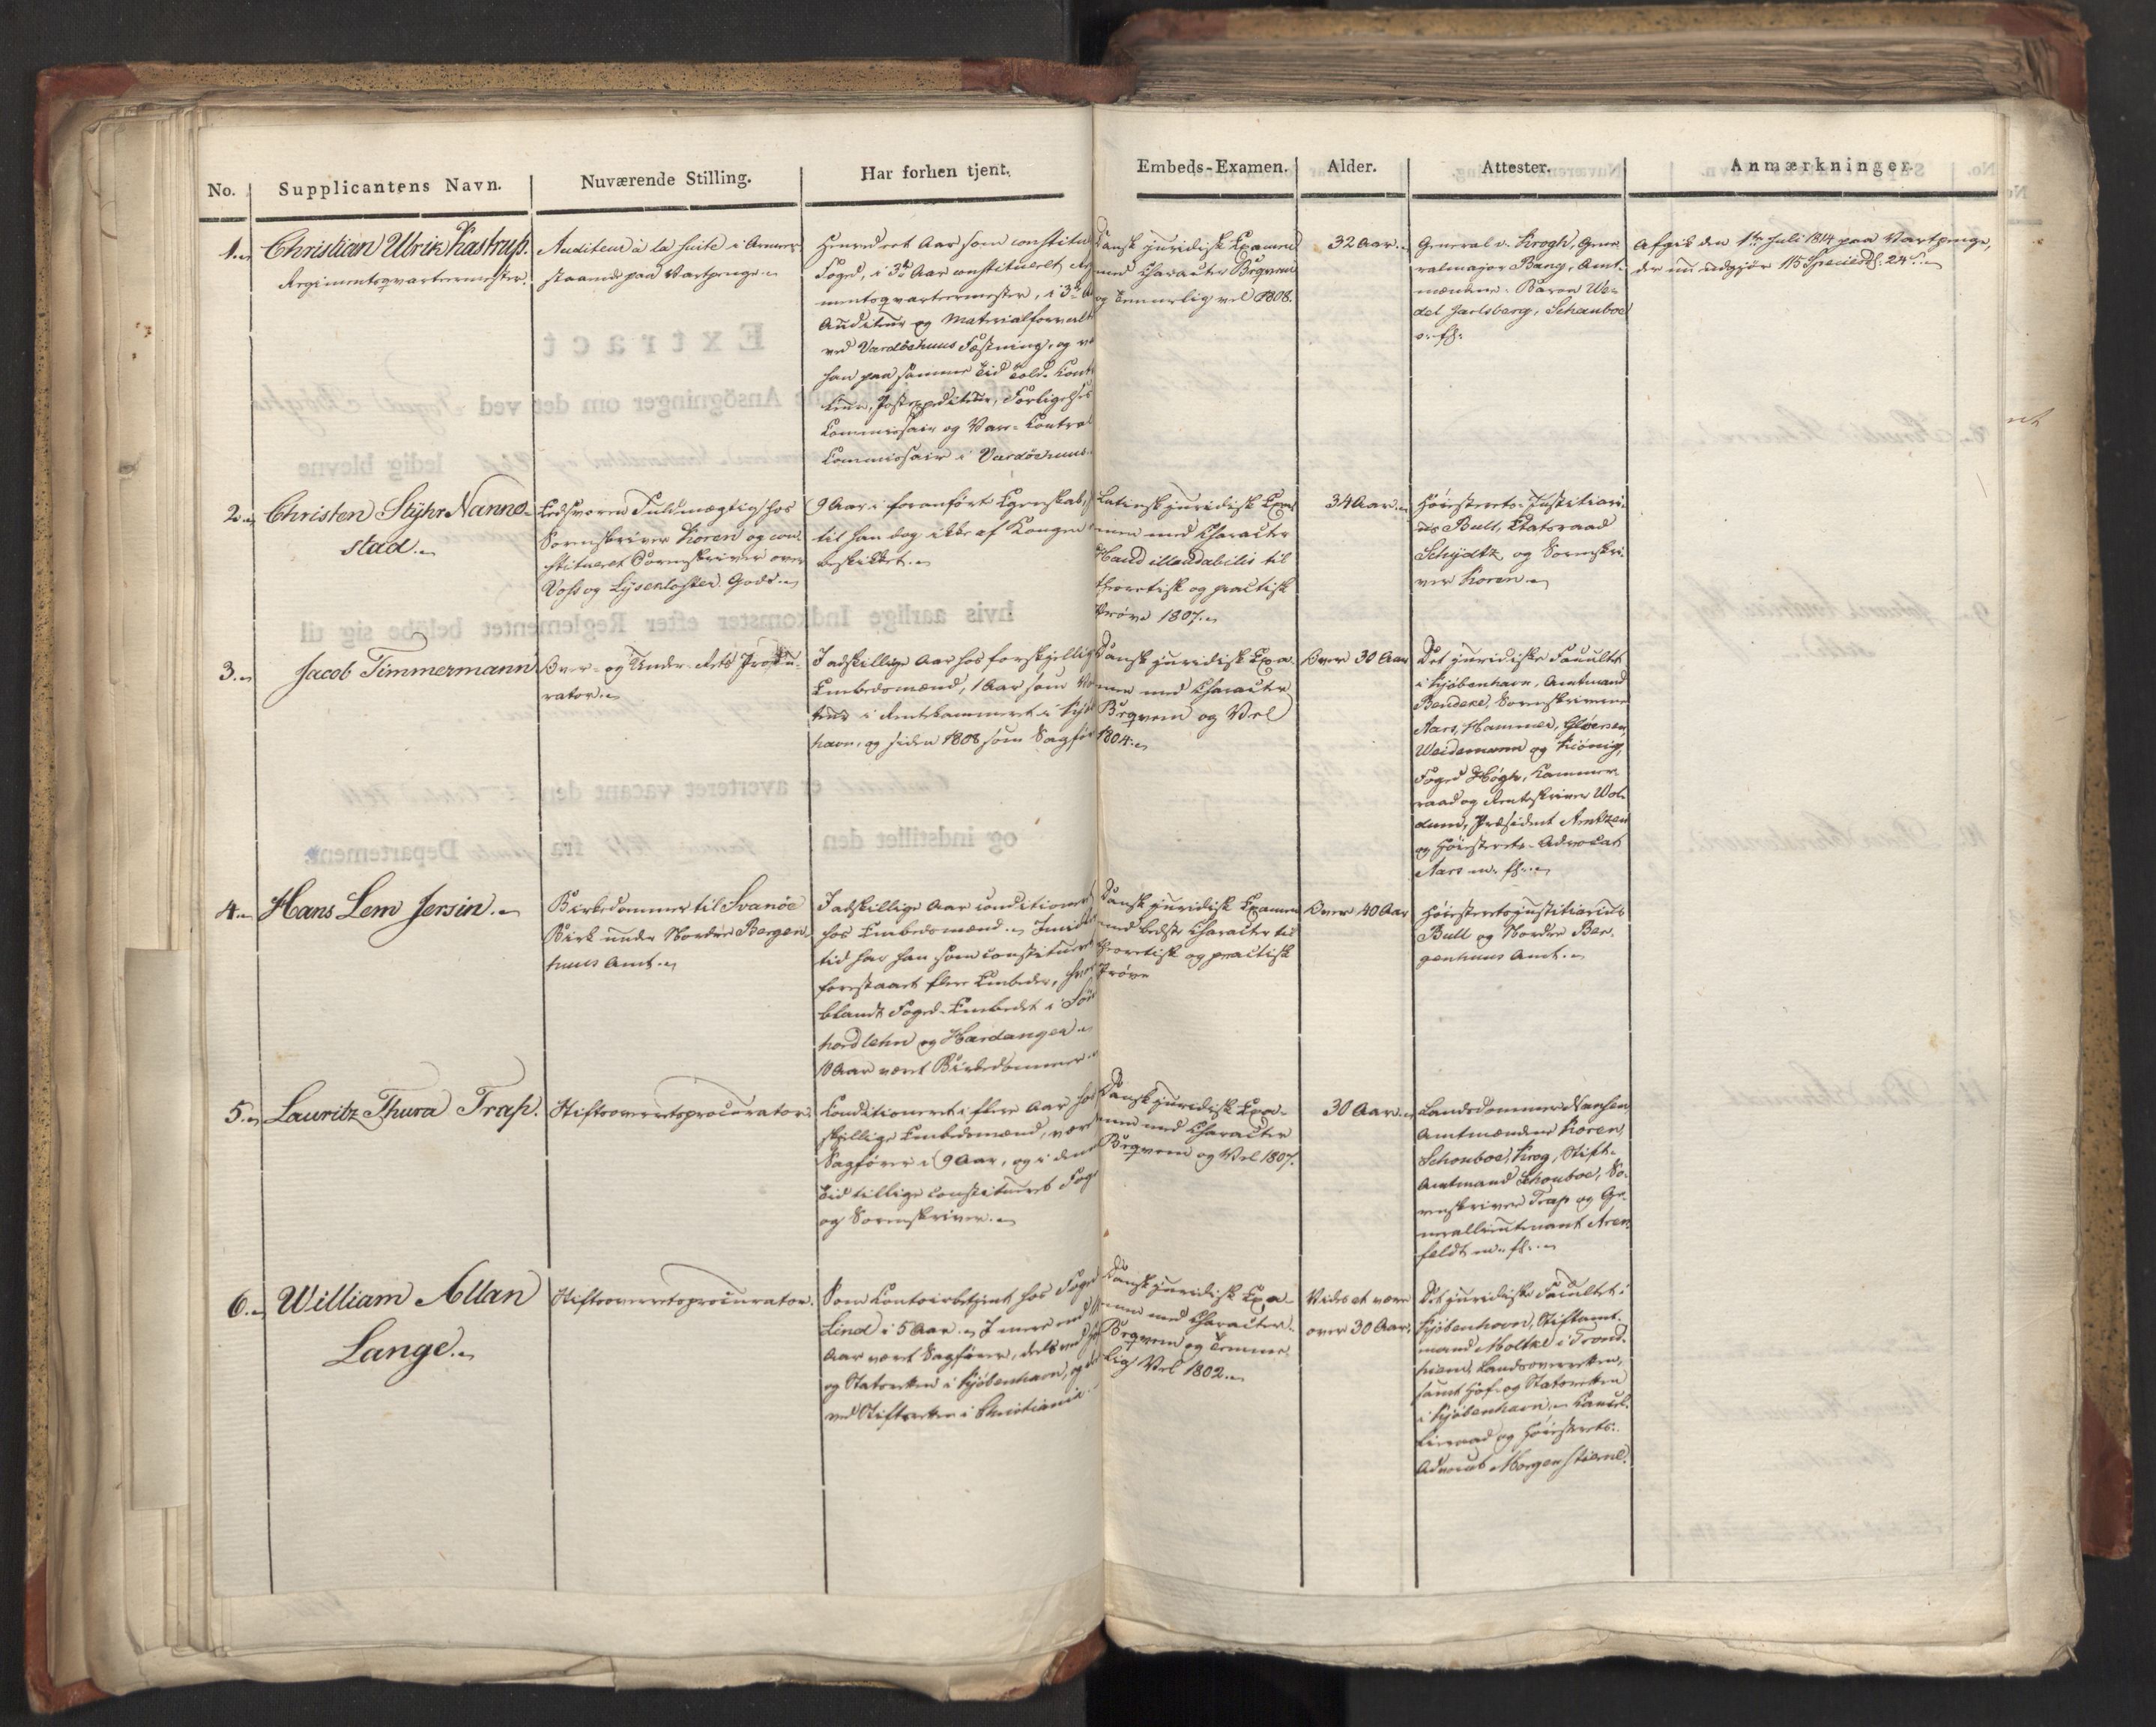 No.
Supplicantens Navn.
Nuværende Stilling.
Har forhen tjent.
Embeds-Examen.
Alder.
Attester.
Anmærkninger.
1.
Christian Ulrik Kastrup.
Regimentsqvarteermester.
Auditeur à la suite i Armeen
staaende paa Vartpenge.
Henved et Aar som constitu
Foged, i 3de Aar constitueret
mentsqvarteermester, i 3de
Auditeur og Materialforvalt
ved Vardöehuus Fæstning, og
han paa samme Tid Told-Cont
leur, Postexpediteur, Forligelses
Commissair og Vare-Control
Commissair i Vardöehuus.
Dansk juridisk Examen
med Character Beqvem
og temmelig vel 1808.
32 Aar.
General v. Krogh, Gene-
ralmajor Bang, Amt-
mændene Baron We-
del Jarlsberg, Schouboe
o. fl.
Afgik den 1ste Juli 1814 paa Vartpenge,
der nu udgjör 115 Species 24 s.
2.
Christen Stÿhr Nanne-
stad.
Edsvoren Fuldmægtig hos
Sorenskriver Koren og con-
stitueret Sorenskriver over
Voss og Lÿsekloster Gods.
9 Aar i foranfört Egenskab,
til han dog ikke af Kongen
beskikket.
Latinsk juridisk Exa-
men med Character
Haud illaudabilis til
theoretisk og practisk
Pröve 1807.
34 Aar.
Höiesterets-Justitiari-
us Bull, Etatsraad
Schydtz og Sorenskri-
ver Koren.
3.
Jacob Timmermann
Over- og Under-Rets Procu-
rator.
I adskillige Aar hos forskjellige
Embedsmænd, 1 Aar som
teur i Rentekammeret i Kjöben
havn, og siden 1808 som Sagför
Dansk juridisk Exa-
men med Character
Beqvem og Vel
1804.
Over 30 Aar
Det juridiske Facultet
i Kjöbenhavn, Amtmand
Bendeke, Sorenskriverne
Aars, Hammer, Gløersen,
Weidemann og König,
Foged Høgh, Kammer-
raad og Renteskriver Wol-
dum, Præsident Arntzen
og Höiesterets-Advocat
Aars m. fl.
4.
Hans Lem Jersin.
Birkedommer til Svanöe
Birk under Nordre Bergen-
huus Amt.
I adskillige Aar conditioneret
hos Embedsmænd. Imidler
tid har han som constitueret
forestaaet flere Embeder, hvor
blandt Foged-Embedet i Sön
hordlehn og Hardanger.
10 Aar været Birkedommer.
Dansk juridisk Examen
med bedste Character til
theoretisk og practisk
Pröve
Over 40 Aar
Höiesteretsjustitiarius
Bull og Nordre Ber-
genhuus Amt.
5.
Lauritz Thura Trap.
Stiftsoverretsprocurator.
Conditioneret i flere Aar hos
skjellige Embedsmænd, være
Sagförer i 9 Aar, og i denne
Tid tillige constitueret Foge
og Sorenskriver.
Dansk juridisk Exa-
men med Character
Beqvem og Vel 1807.
30 Aar.
Landsdommer Nansen,
Amtmændene Koren,
Schouboe, Krog, Stift-
Amtmand Schouboe, So-
renskriver Trap og Ge-
nerallieutenant Aren-
feldt m. fl.
6.
William Allan
Lange.
Stiftsoverretsprocurator.
Som Contoirbetjent hos Foged
Lind i 5 Aar. I mere end
Aar været Sagförer, dels ved Hof
og Statsretten i Kjöbenhavn, og
ved Stiftsretten i Christiania.
Dansk juridisk Exa-
men med Character
Beqvem og Temme-
lig Vel 1802.
Vides at være
over 30 Aar.
Det juridiske Facultet i
Kjöbenhavn, Stiftamt-
mand Moltke i Trond-
hiem, Landsoverretten,
samt Hof- og Statsretten
i Kjöbenhavn, Cancel-
lieraad og Höiesterets-
Advocat Morgenstierne.